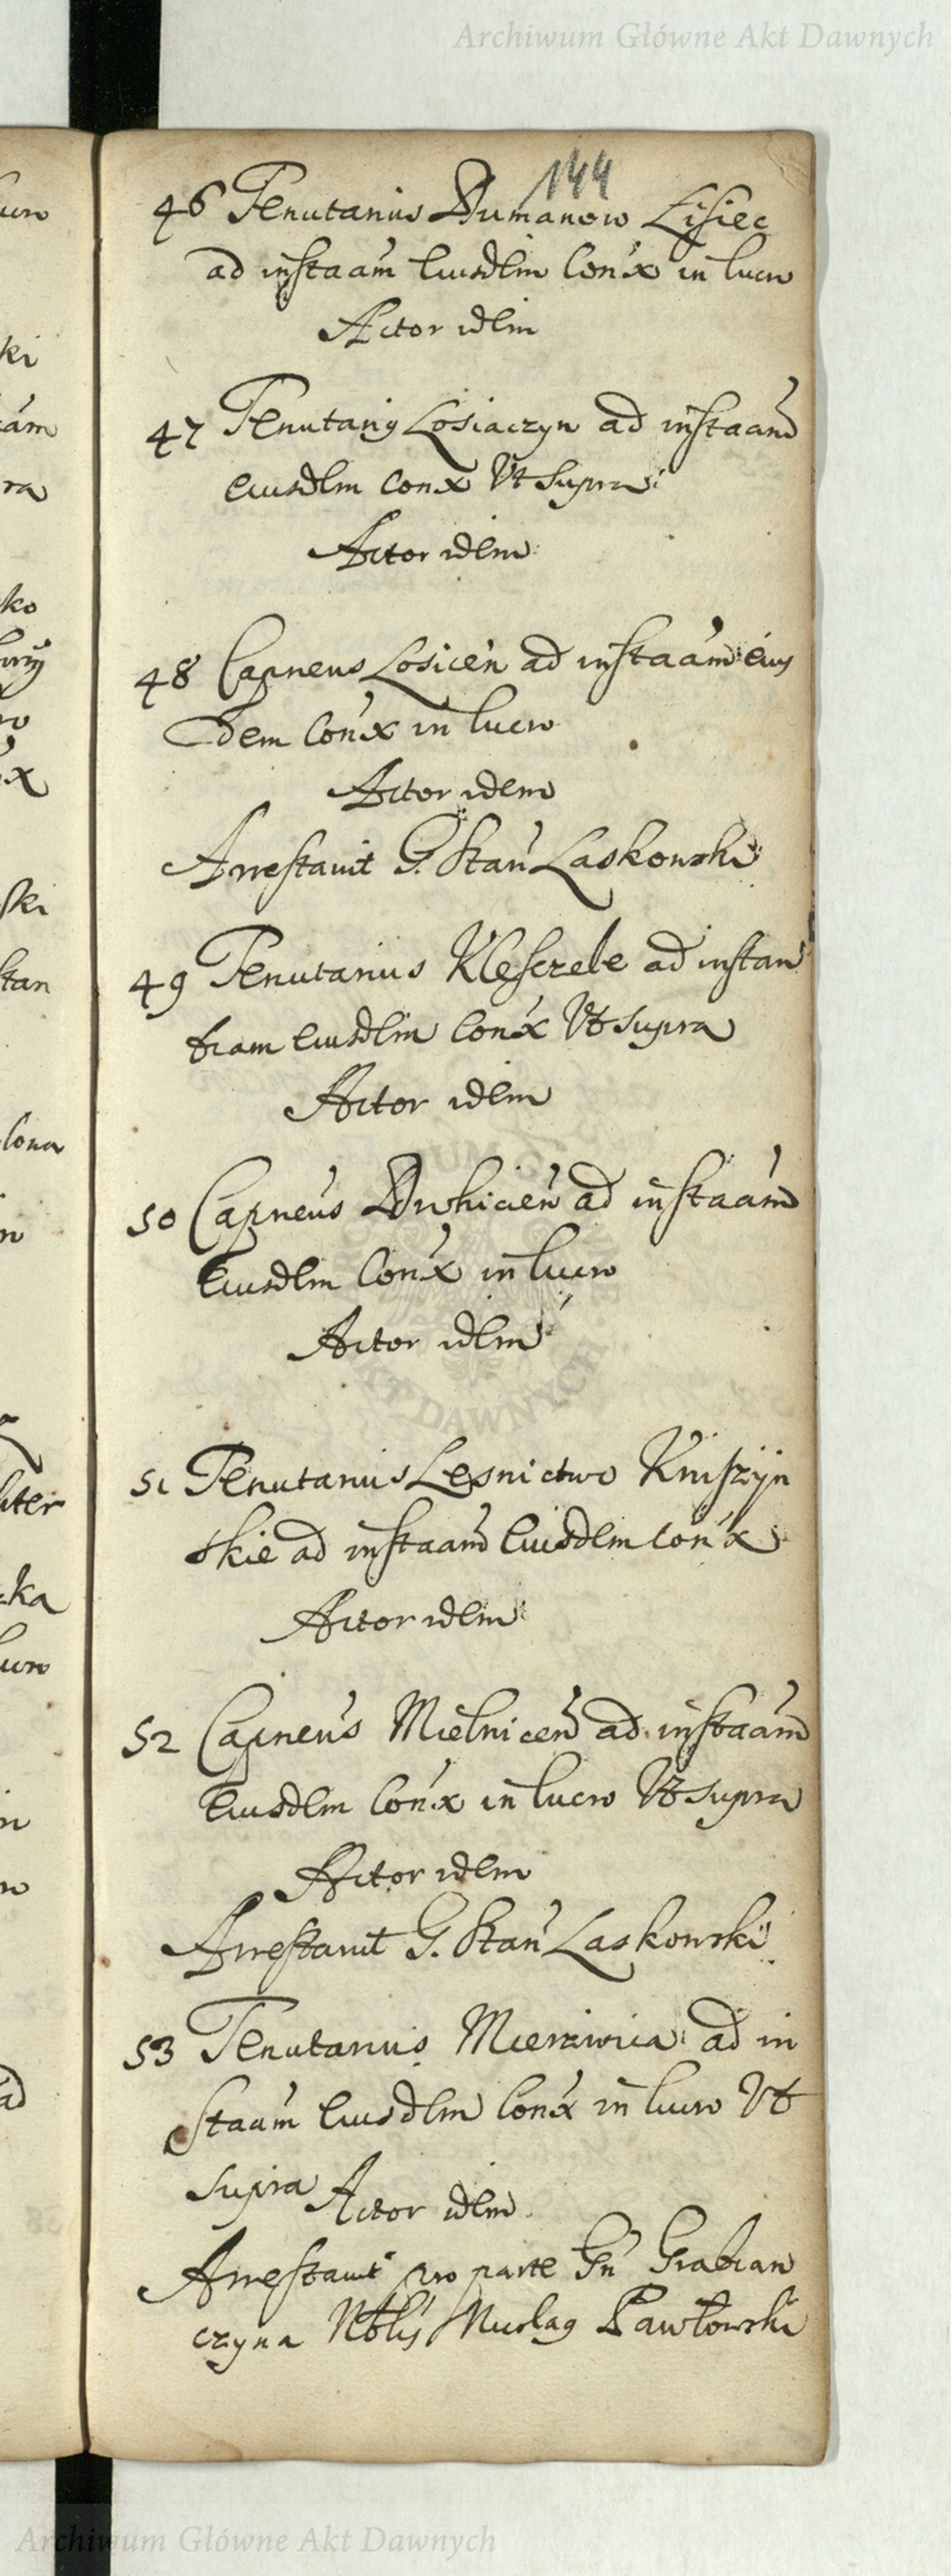 Archiwum Główne Akt Dawnych
144
46 Tenutarius Dumanow Lisiec
ad instaam Eiusdem Con'x in lucro
Actor idem
47 Tenutariy Losiaczyn ad instaam
Eiusdem Con'x Vt supra
Actor idem
48 Capneus Losicen ad instaam eius
dem Con'x in lucro
Actor idem
Arrestavit G. Stan Laskowski
49 Tenutarius Kleszczele ad instan
tiam Eiusdem Con'x Vt supra
Actor idem
50 Capneus Drohicien ad instaam
Eiusdem Con'x in lucro
Actor idem
51 Tenutarius Lesnictwo Kniszyn
skie ad instaam Eiusdem Con'x
Actor idem
52 Capneus Mielnicen ad instaam
Eiusdem Con'x in lucro Vt supra
Actor idem
Arrestavit G. Stan Laskowski
53 Tenutarius Mierzwica ad in
staam Eiusdem Con'x in lucro Vt
supra Actor idem
Arrestavit pro parte Gn Grabian
czyna Nblis Pawłowski
Archiwum Główne Akt Dawnych